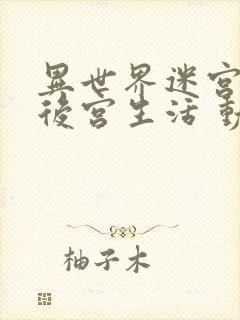 異世界迷宮
後宮生活 動
柚子木